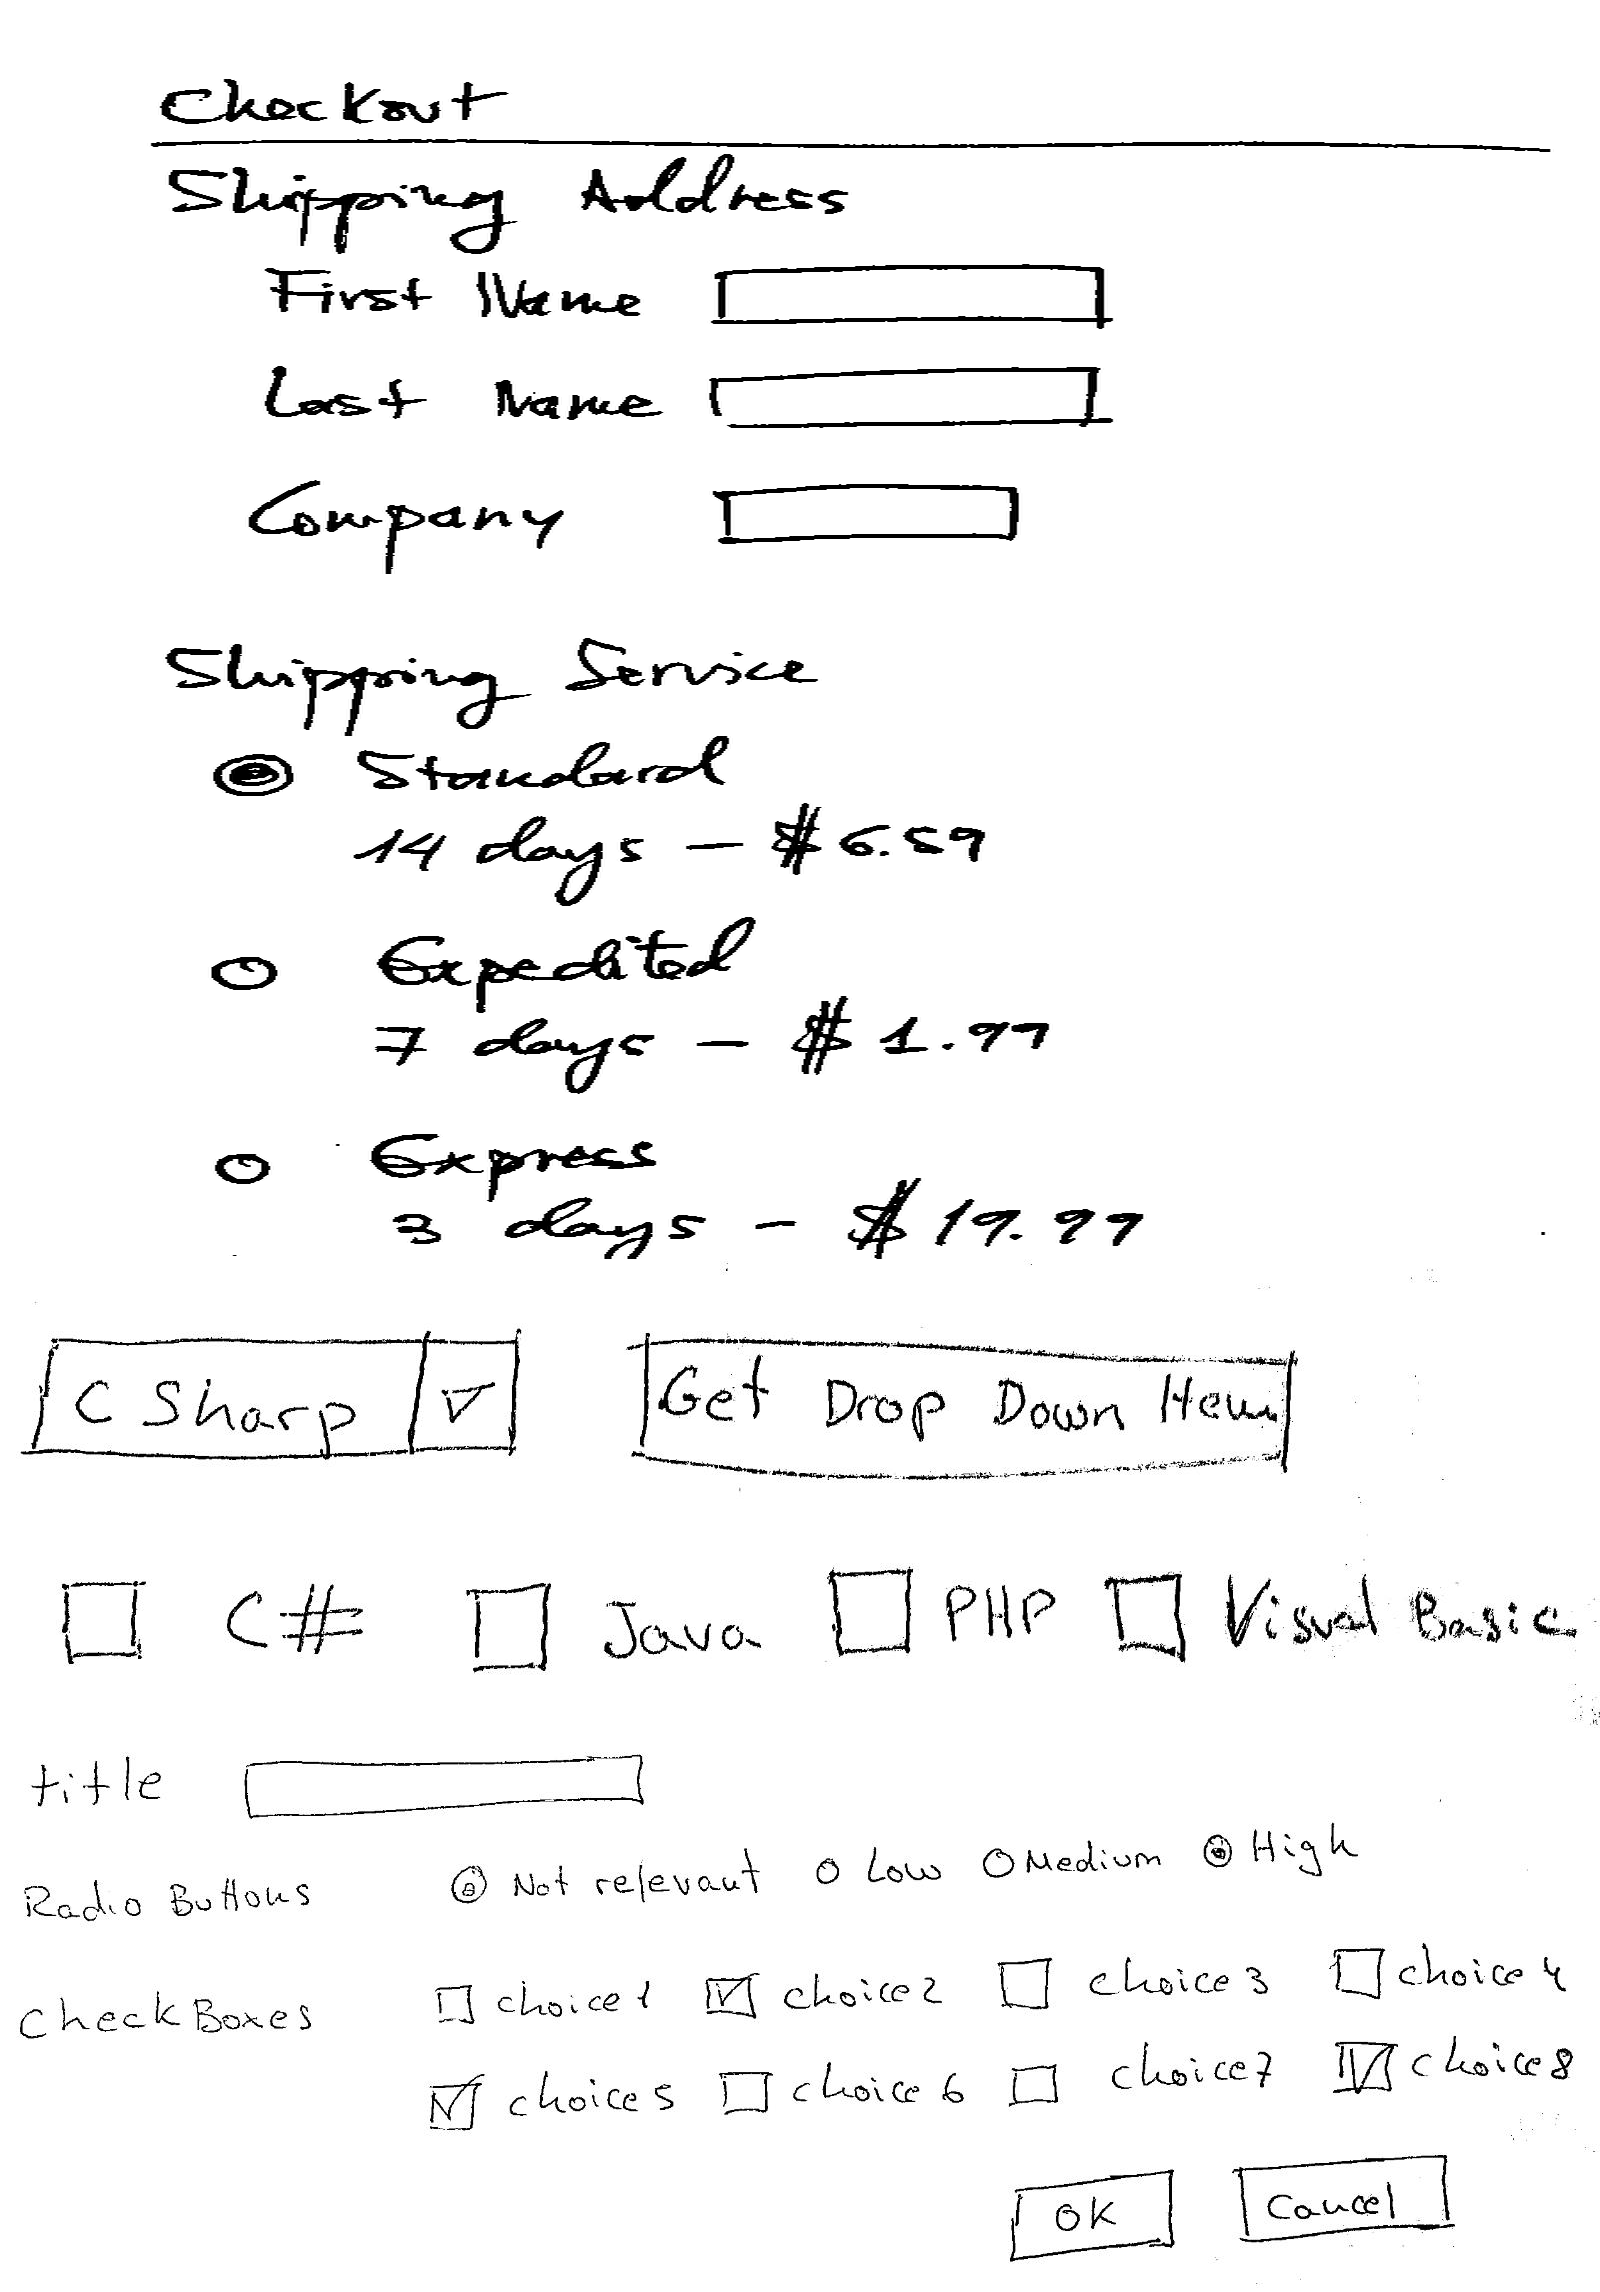 Checkout
Shipping Address
First Name
Last Name
Company
Shipping Service
Standard
14 days - $6.59
Expedited
7 days - $1.99
Express
3 days - $19.99
C Sharp Get Drop Down Item
C# Java PHP Visual Basic
title
Radio Buttons Not relevant Low Medium High
CheckBoxes choice1 choice2 choice3 choice4
choice5 choice6 choice7 choice8
OK Cancel